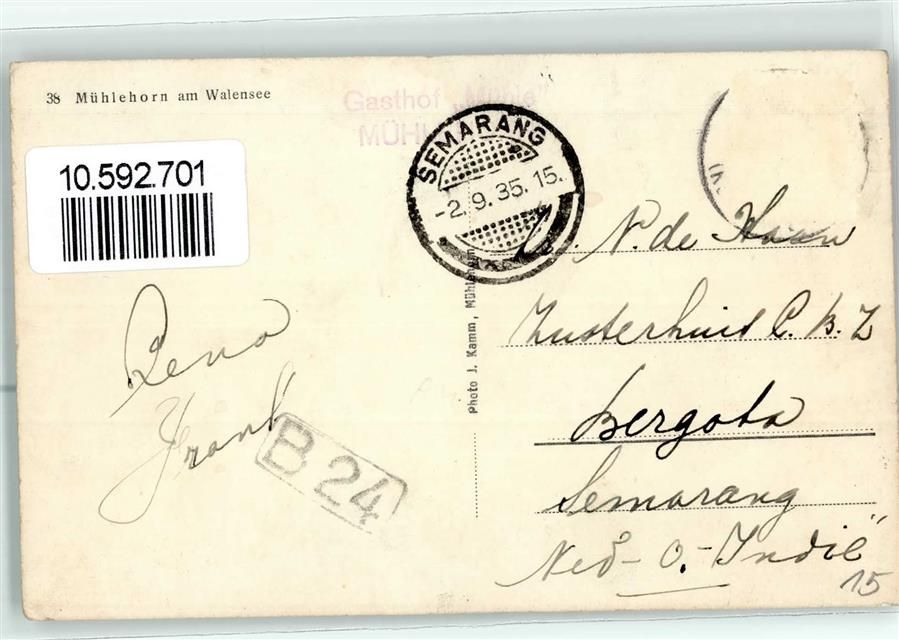 38 Mühlehorn am Walensee
Gasthof „Mühle"
10.592.701
SEMARANG
-2.9.35.15.
N. de Haan
Zusterhuis C. B. Z
Bergota
Semarang
Ned-O.-Indië
15
Rena
Frank
B 24
Photo J. Kamm, Mühlehorn